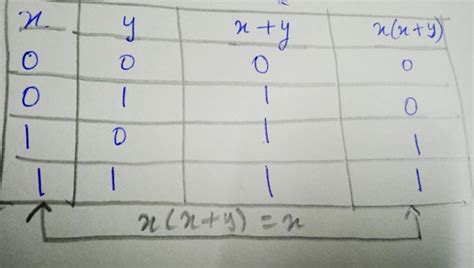 x y x+y x(x+y)
0 0 0 0
0 1 1 0
1 0 1 1
1 1 1 1
x(x+y)=x